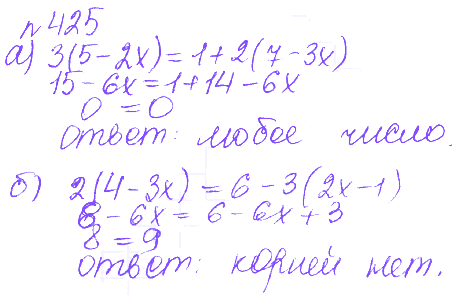 n 425
а) 3(5-2x) = 1+2(7-3x)
15-6x=1+14-6x
0 = 0
ответ: любое число.
б) 2(4-3x) = 6-3(2x-1)
8-6x = 6-6x+3
8 = 9
ответ: корней нет.